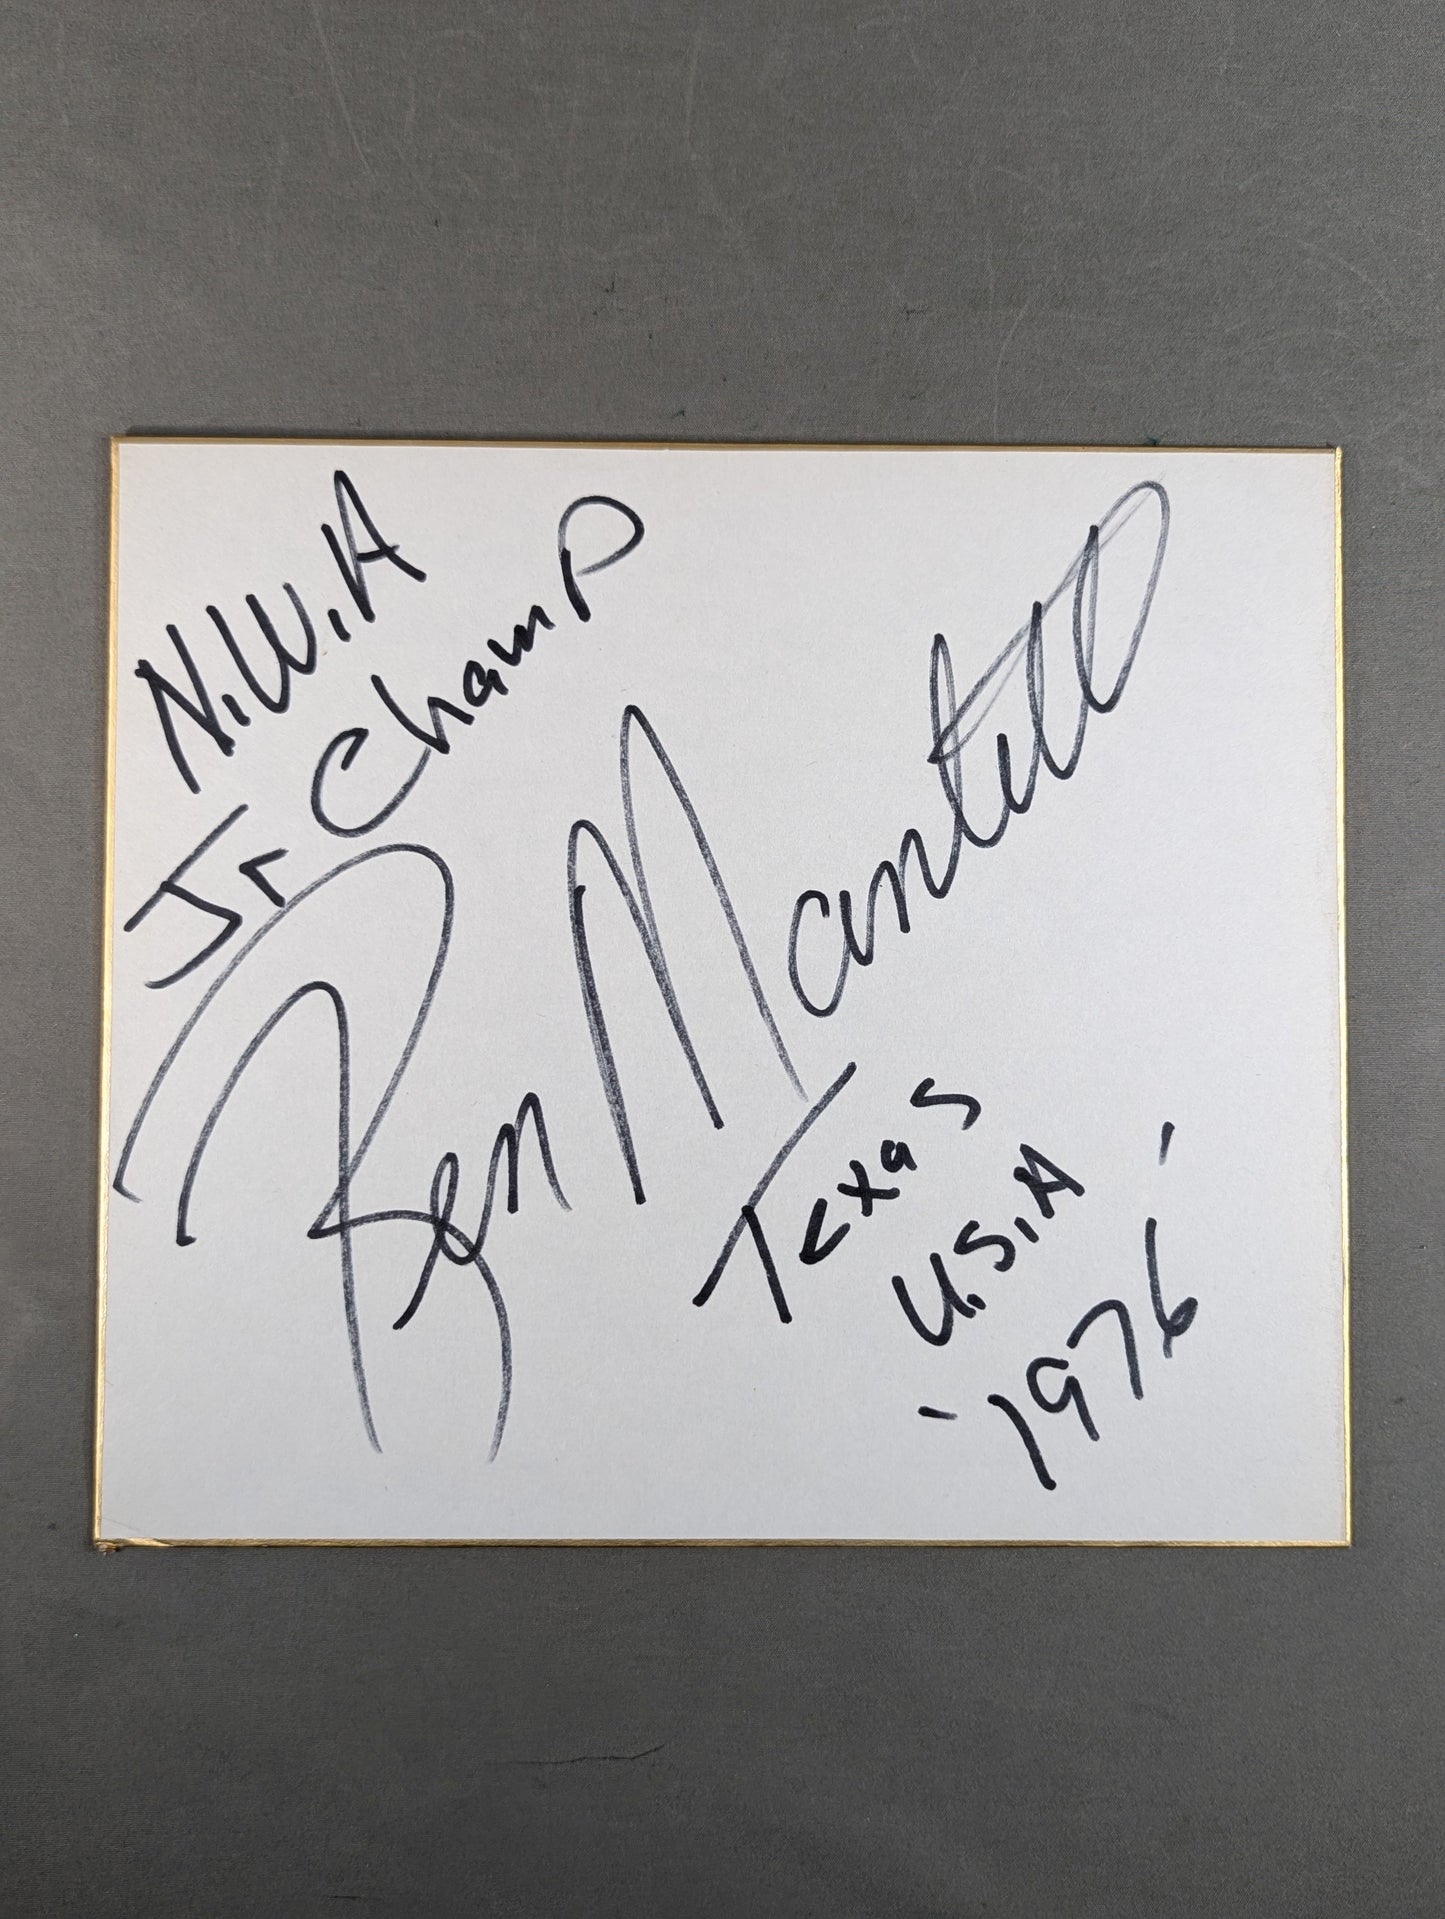 N.W.A
Jr Champ
Ken Mantell
Texas
U.S.A
'1976'